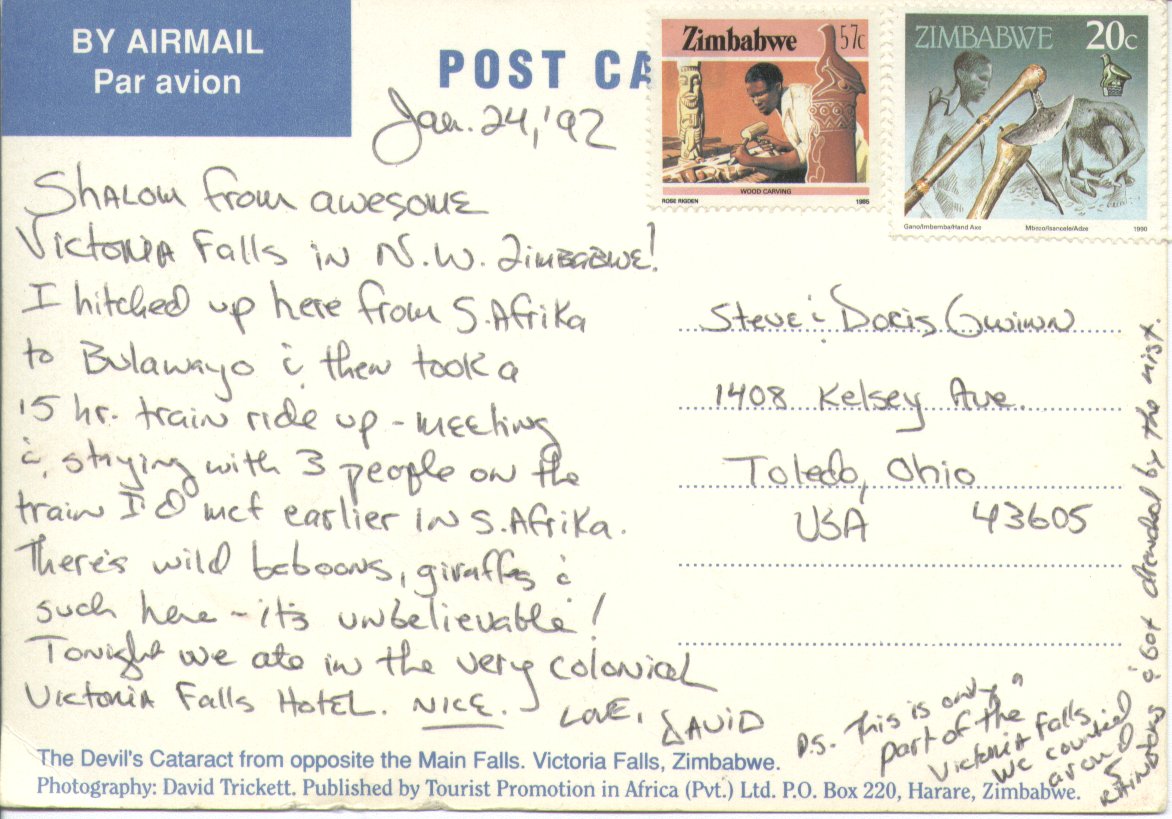 BY AIRMAIL
Par avion
POST CA
Zimbabwe 57c
WOOD CARVING
ROSE RIGDEN 1985
ZIMBABWE 20c
Gano/Imbemba/Hand Axe Mbezo/Isancele/Adze 1990
Jan. 24, '92
Shalom from awesome
Victoria Falls in N.W. Zimbabwe!
I hitched up here from S. Afrika
to Bulawayo & then took a
15 hr. train ride up - meeting
& staying with 3 people on the
train I'd met earlier in S. Afrika.
There's wild baboons, giraffes &
such here - it's unbelievable!
Tonight we ate in the very colonial
Victoria Falls Hotel. NICE. Love, David
Steve & Doris Gwinn
1408 Kelsey Ave.
Toledo, Ohio
USA 43605
P.S. This is only a
part of the
Victoria Falls.
We counted
around
5
rainbows & got drenched by the mist.
The Devil's Cataract from opposite the Main Falls. Victoria Falls, Zimbabwe.
Photography: David Trickett. Published by Tourist Promotion in Africa (Pvt.) Ltd. P.O. Box 220, Harare, Zimbabwe.